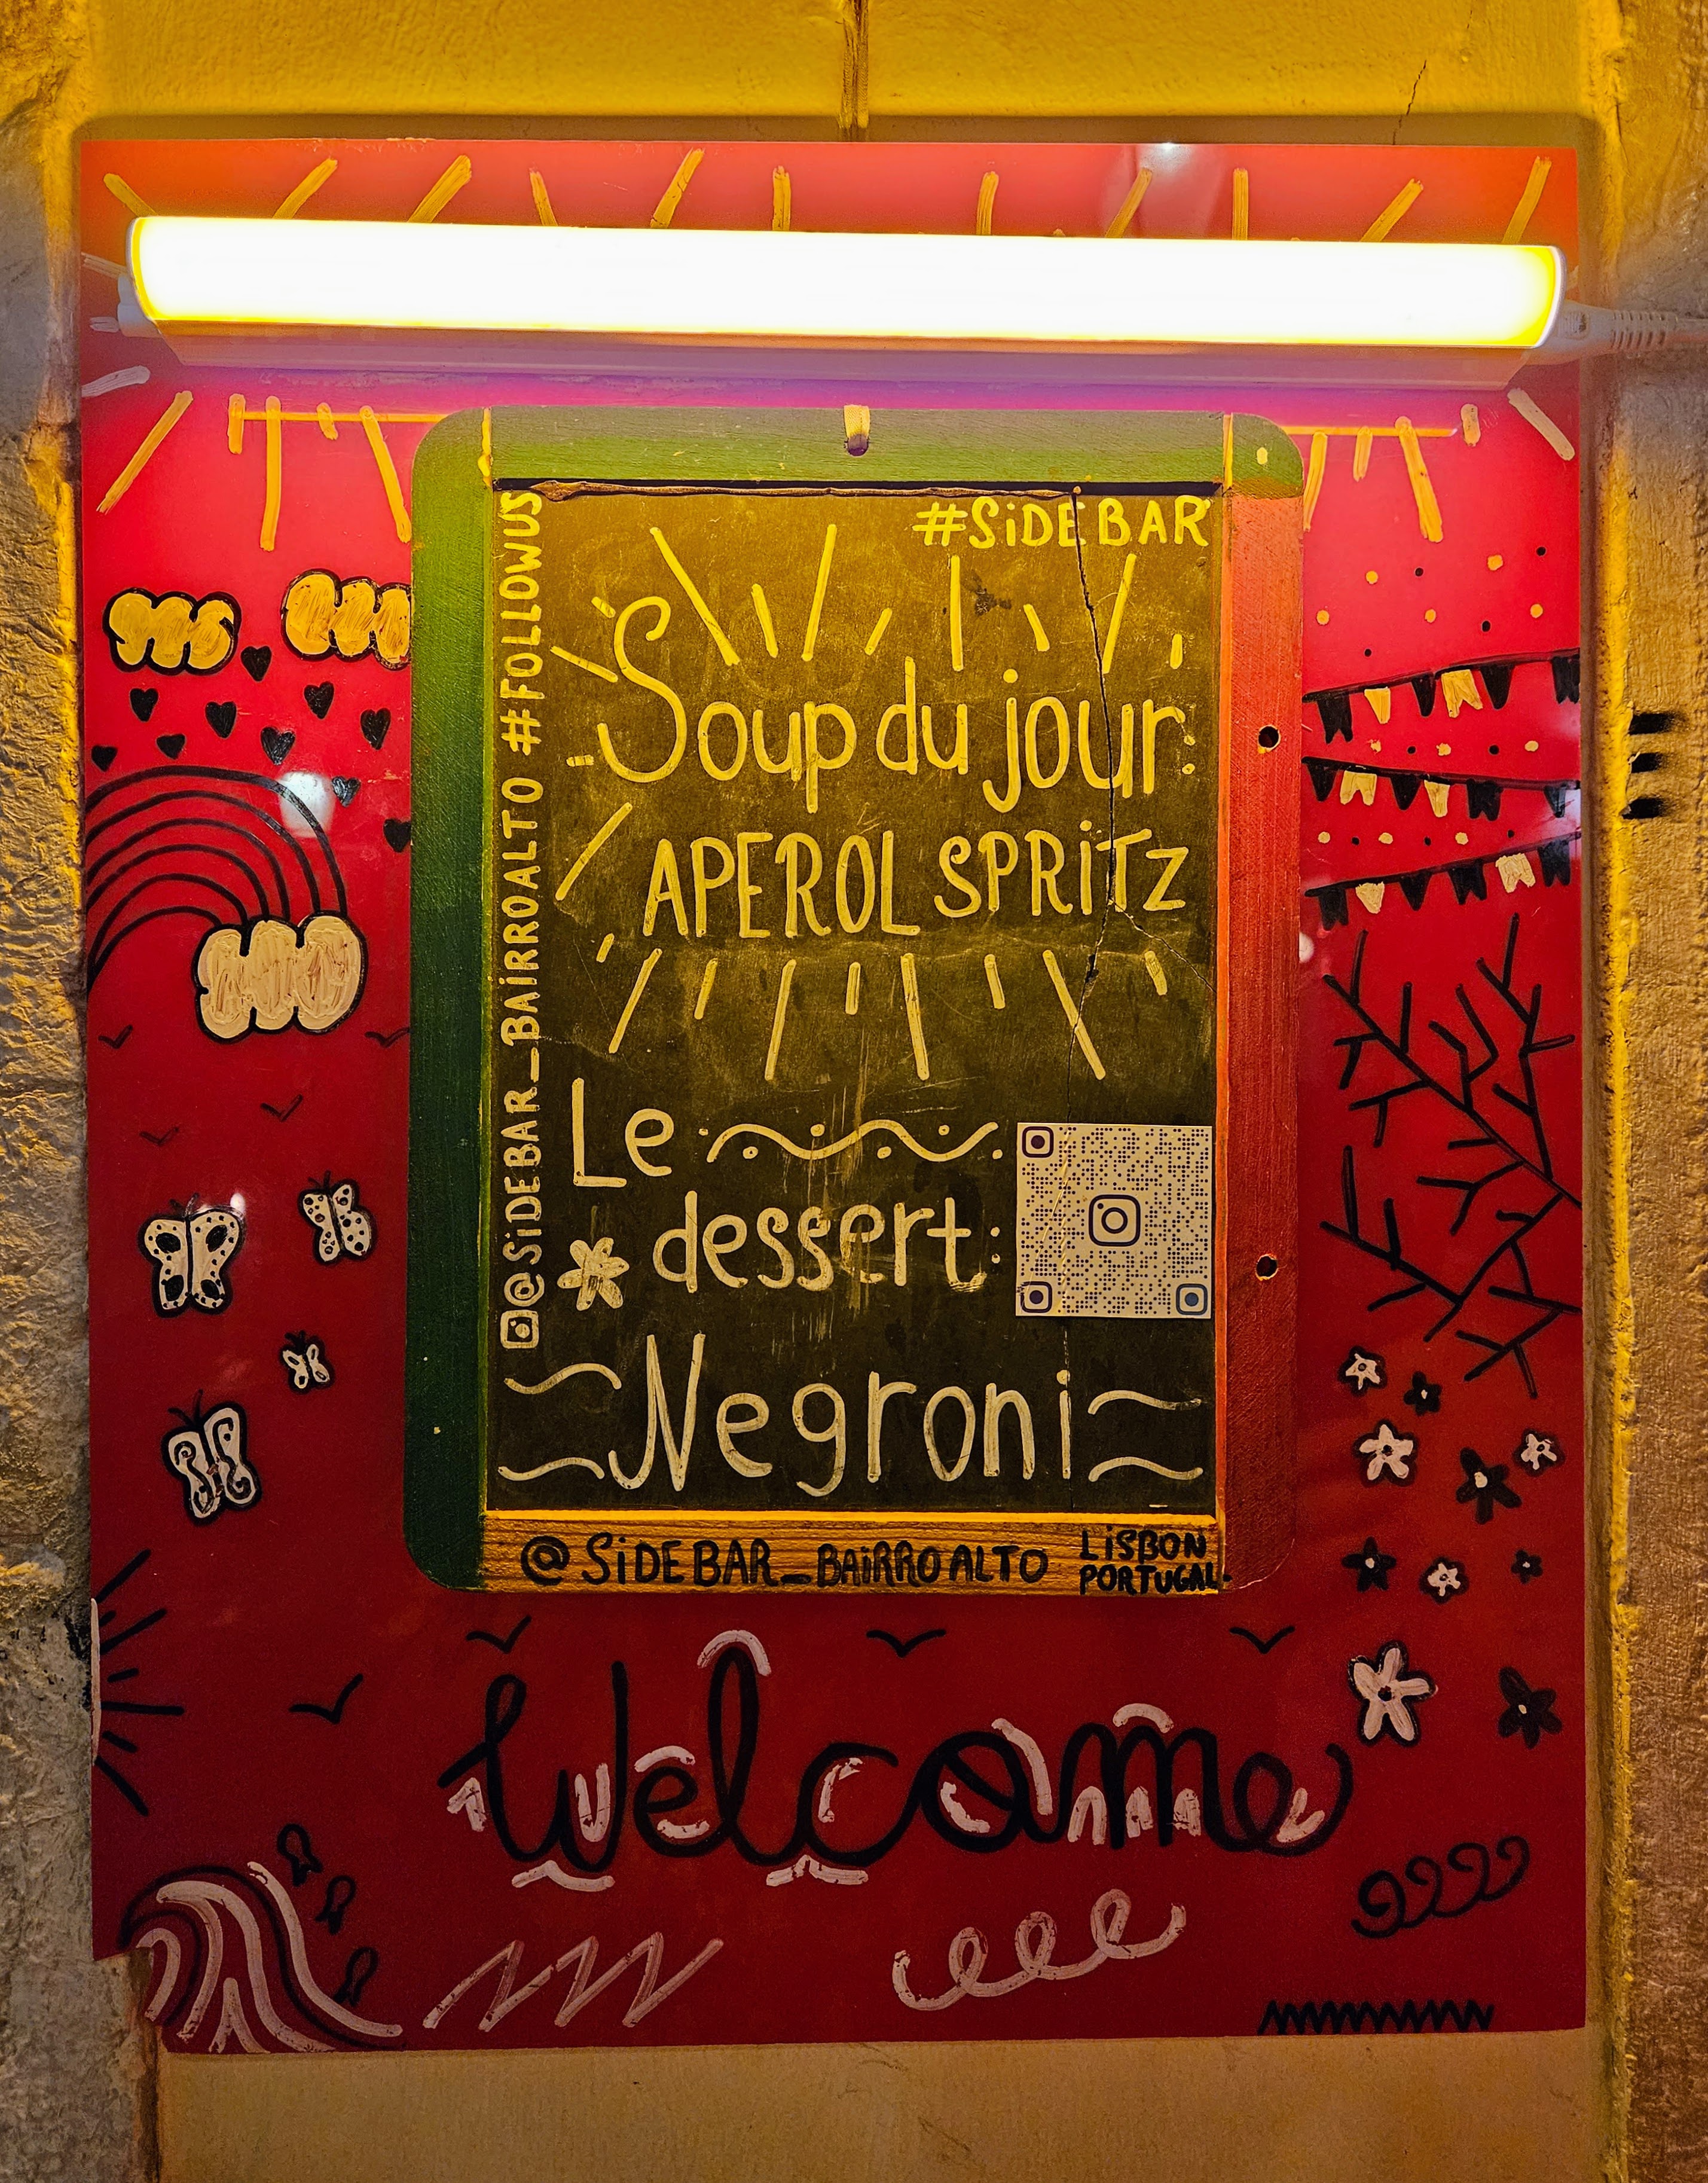 #SiDEBAR
Soup du jour:
APEROL SPRiTZ
Le
dessert:
Negroni
@SiDEBAR_BAiRROALTO #FOLLOWUS
@SiDEBAR_BAiRROALTO
LiSBON
PORTUGAL
Welcome